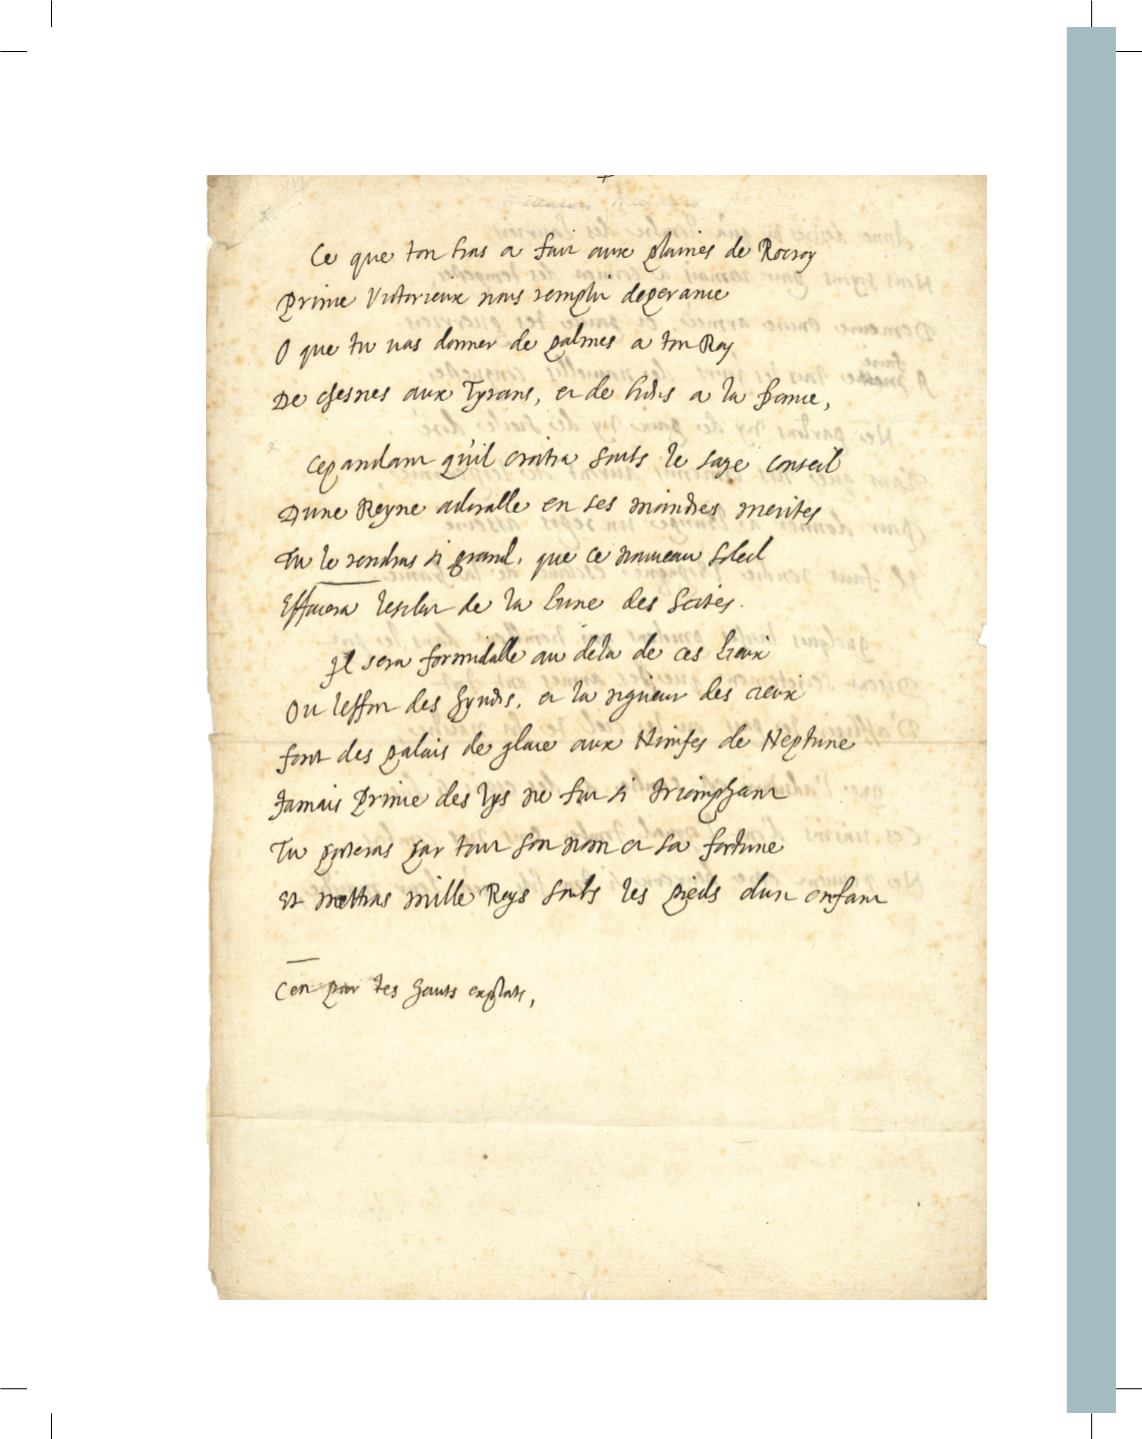 Ce que ton bras a fait aux plaines de Rocroy
Prince Victorieux nous remplit desperance
O que tu vas donner de palmes a ton Roy
De chesnes aux Tyrans, et de a la france,
Cependant qu'il croitra soubs le sage conseil
Dune Reyne adorable en ses moindres merites
Tu le rendras si grand, que ce nouveau soleil
Effacera lesclat de la Lune des Scites.
Il sera formidable au dela de ces Lieux
Ou leffort des et la rigueur des cieux
font des palais de glace aux Nimfes de Neptune
Jamais Prince des lys ne fut si triomphant
Tu porteras par tout son nom et sa fortune
Et mettras mille Roys soubs les pieds dun enfant
Cest par tes hauts exploits,